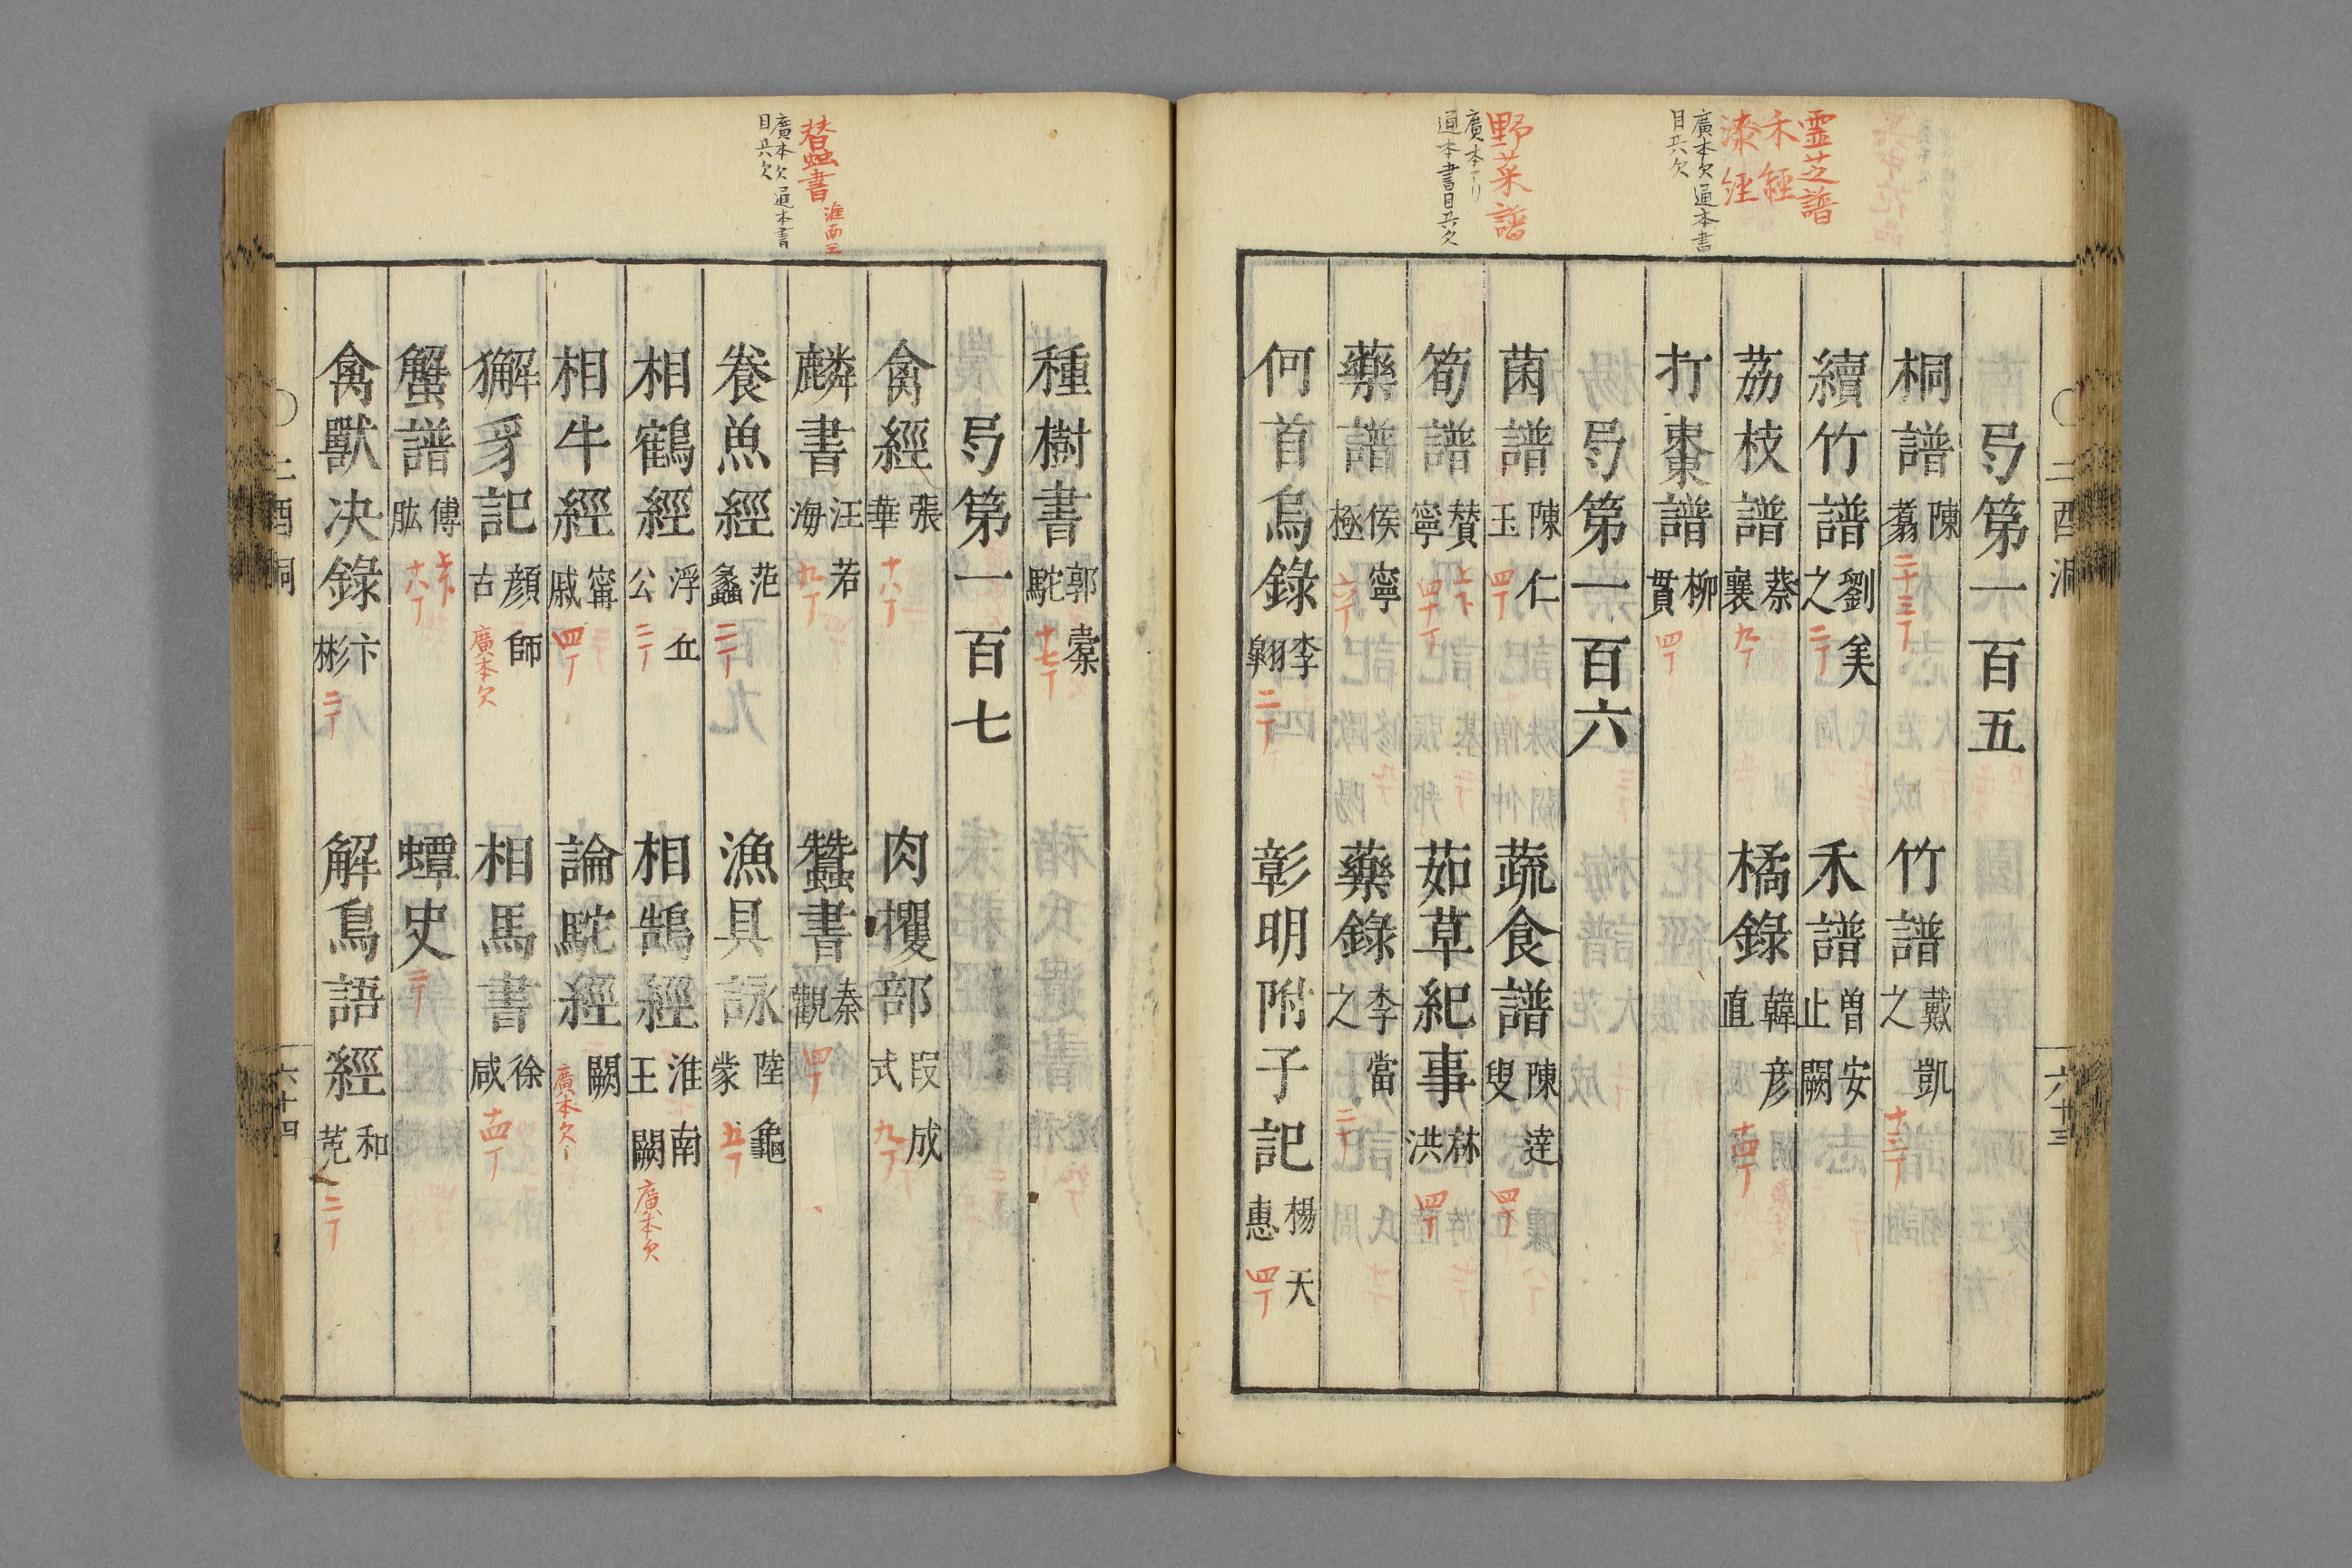 靈芝譜
禾經
漆経
廣本欠通本書
目共欠
野菜譜
廣本アリ
通本書目共欠
二酉洞
六十三
弓第一百五
桐譜 陳翥 二十三丁
竹譜 戴凱之 十三丁
續竹譜 劉美之 二丁
禾譜 曽安止 闕
荔枝譜 蔡襄 九丁
橘錄 韓彦直 十四丁
打棗譜 柳貫 四丁
弓第一百六
菌譜 陳仁玉 四丁
蔬食譜 陳達叟 四丁
筍譜 賛寧 上下 四十丁
茹草紀事 林洪 四丁
藥譜 侯寧極 六丁
藥錄 李當之 二丁
何首烏錄 李翱 二丁
彰明附子記 楊天惠 四丁
蠶書 淮南王
廣本欠通本書
目共欠
種樹書 郭橐駝 十七丁
弓第一百七
禽經 張華 十八丁
肉攫部 段成式 九丁
麟書 汪若海 九丁
蠶書 秦觀 四丁
養魚經 范蠡 二丁
漁具詠 陸龜蒙 五丁
相鶴經 浮丘公 二丁
相鵠經 淮南王 闕 廣本欠
相牛經 甯戚 四丁
論駝經 闕 廣本欠
獬豸記 顔師古 廣本欠
相馬書 徐咸 十四丁
蟹譜 傅肱 上下 十八丁
蟫史 三丁
禽獸决錄 卞彬 二丁
解鳥語經 和菟 二丁
二酉洞
六十四